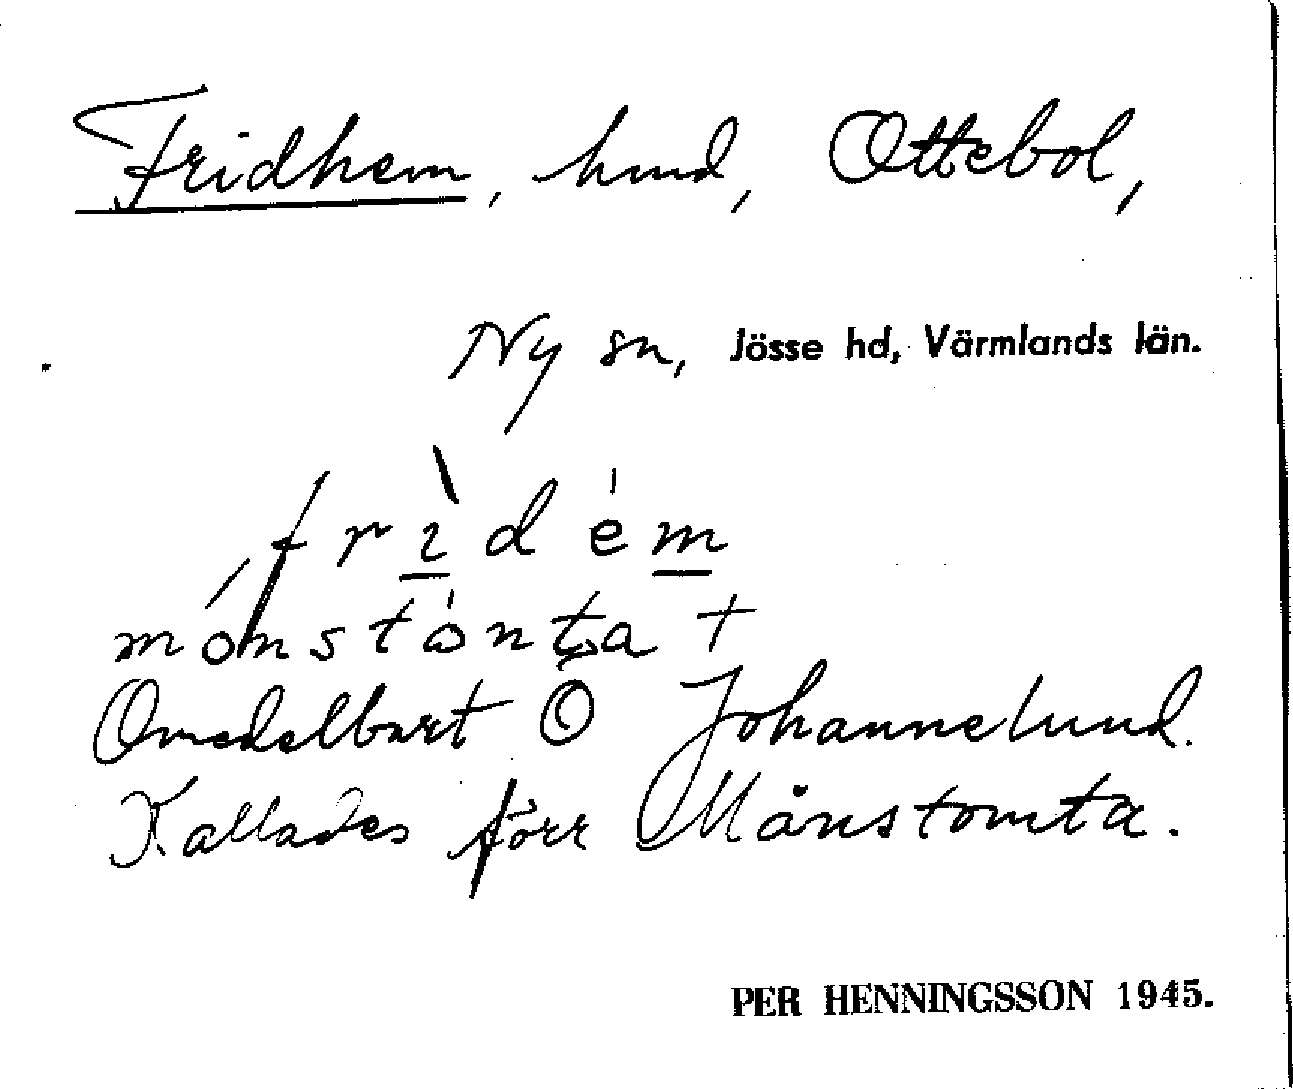 Fridhem, hmd, Ottebol,
Ny sn, Jösse hd, Värmlands län.
frìdém
mónstònta +
Omedelbart Ö Johannelund.
Kallades förr Månstomta.
PER HENNINGSSON 1945.